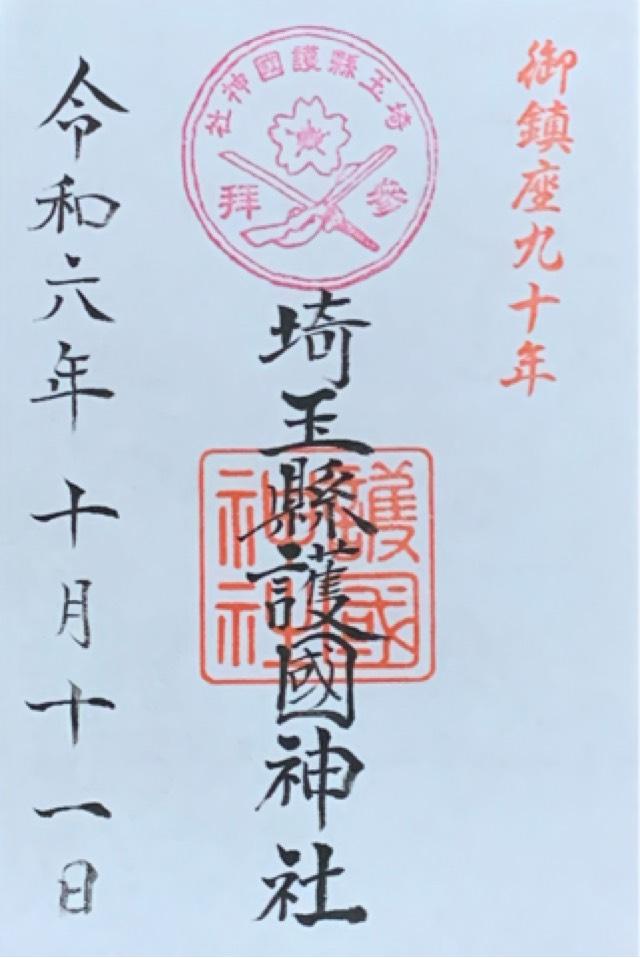 御鎮座九十年
埼玉縣護國神社
参拜
埼玉縣護國神社
護國
神社
令和六年十月十一日